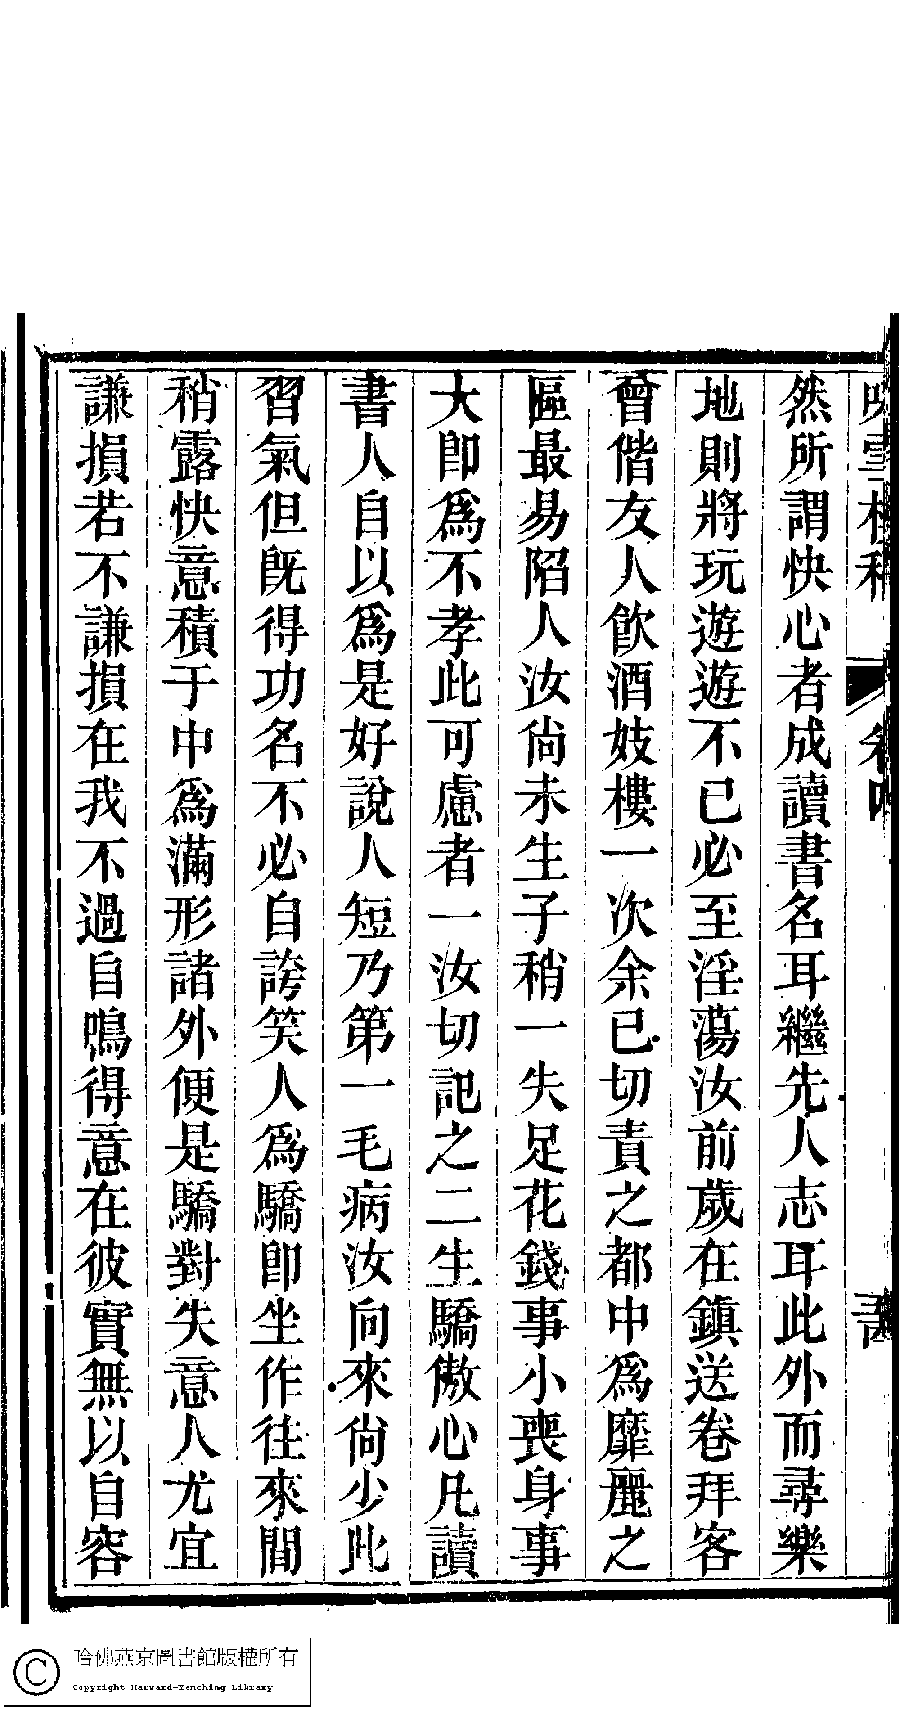 然所謂快心者成讀書名耳繼先人志耳此外而尋樂
地則將玩遊遊不已必至淫蕩汝前歲在鎮送卷拜客
曾偕友人飮酒妓樓一次余已切責之都中爲靡麗之
區最易陷人汝尙未生子稍一失足花錢事小喪身事
大卽爲不孝此可慮者一汝切記之二生驕傲心凡讀
書人自以爲是好說人短乃第一毛病汝向來尙少此
習氣但旣得功名不必自誇笑人爲驕卽坐作往來間
稍露快意積于中爲滿形諸外便是驕對失意人尤宜
謙損若不謙損在我不過自鳴得意在彼實無以自容
哈佛燕京圖書館版權所有
Copyright Harvard-Yenching Library